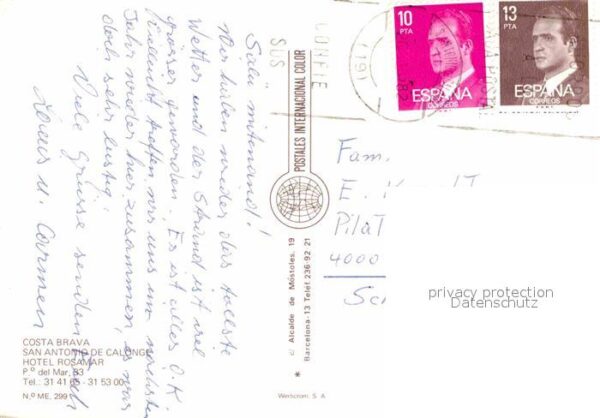 Salü mitenand!
Wir haben wieder das tollste
Wetter und der Strand ist viel
grösser geworden. Es ist alles O.K.
Vielleicht treffen wir uns im nächsten
Jahr wieder hier zusammen, es war
doch sehr lustig.
Viele Grüsse senden Euch
u. Carmen
COSTA BRAVA
SAN ANTONIO DE CALONGE
HOTEL ROSAMAR
P.º del Mar, 33
Tel.: 31 41 65 - 31 53 00
N.º ME. 299
POSTALES INTERNACIONAL COLOR
c/ Alcalde de Móstoles, 19
Barcelona-13 Telef. 236 92 21
Werticrom, S. A.
10
PTA
ESPAÑA
CORREOS
13
PTA
ESPAÑA
CORREOS
CONFIE
SUS
Fam.
E.
Pilat
4000
privacy protection
Datenschutz